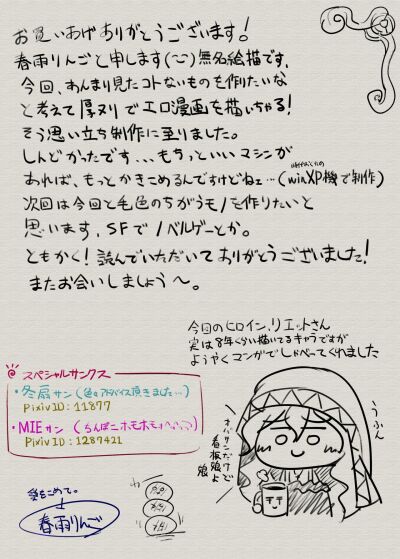 お買いあげありがとうございます!
春雨りんごと申します(~ー)無名絵描です。
今回、あんまり見たコトないものを作りたいな
と考えて厚ヌリでエロ漫画を描いちゃる!
そう思い立ち制作に至りました。
しんどかったです...もちっといいマシンが
あれば、もっとかきこめるんですけどねェ…(winXP機で制作)
次回は今回と毛色のちがうモノを作りたいと
思います。SFでノベルゲーとか。
ともかく!読んでいただいてありがとうございました!
またお会いしましょう〜。
今回のヒロイン、リエットさん
実は8年くらい描いてるキャラですが
ようやくマンガでしゃべってくれました
スペシャルサンクス
・冬扇サン(色々アドバイス頂きました…)
PixivID:11877
・MIEサン(ちんぽにホモホモ
PixivID:1287421
うふん
オバサンだけど
看板娘よ
娘
愛をこめて。
春雨りんご